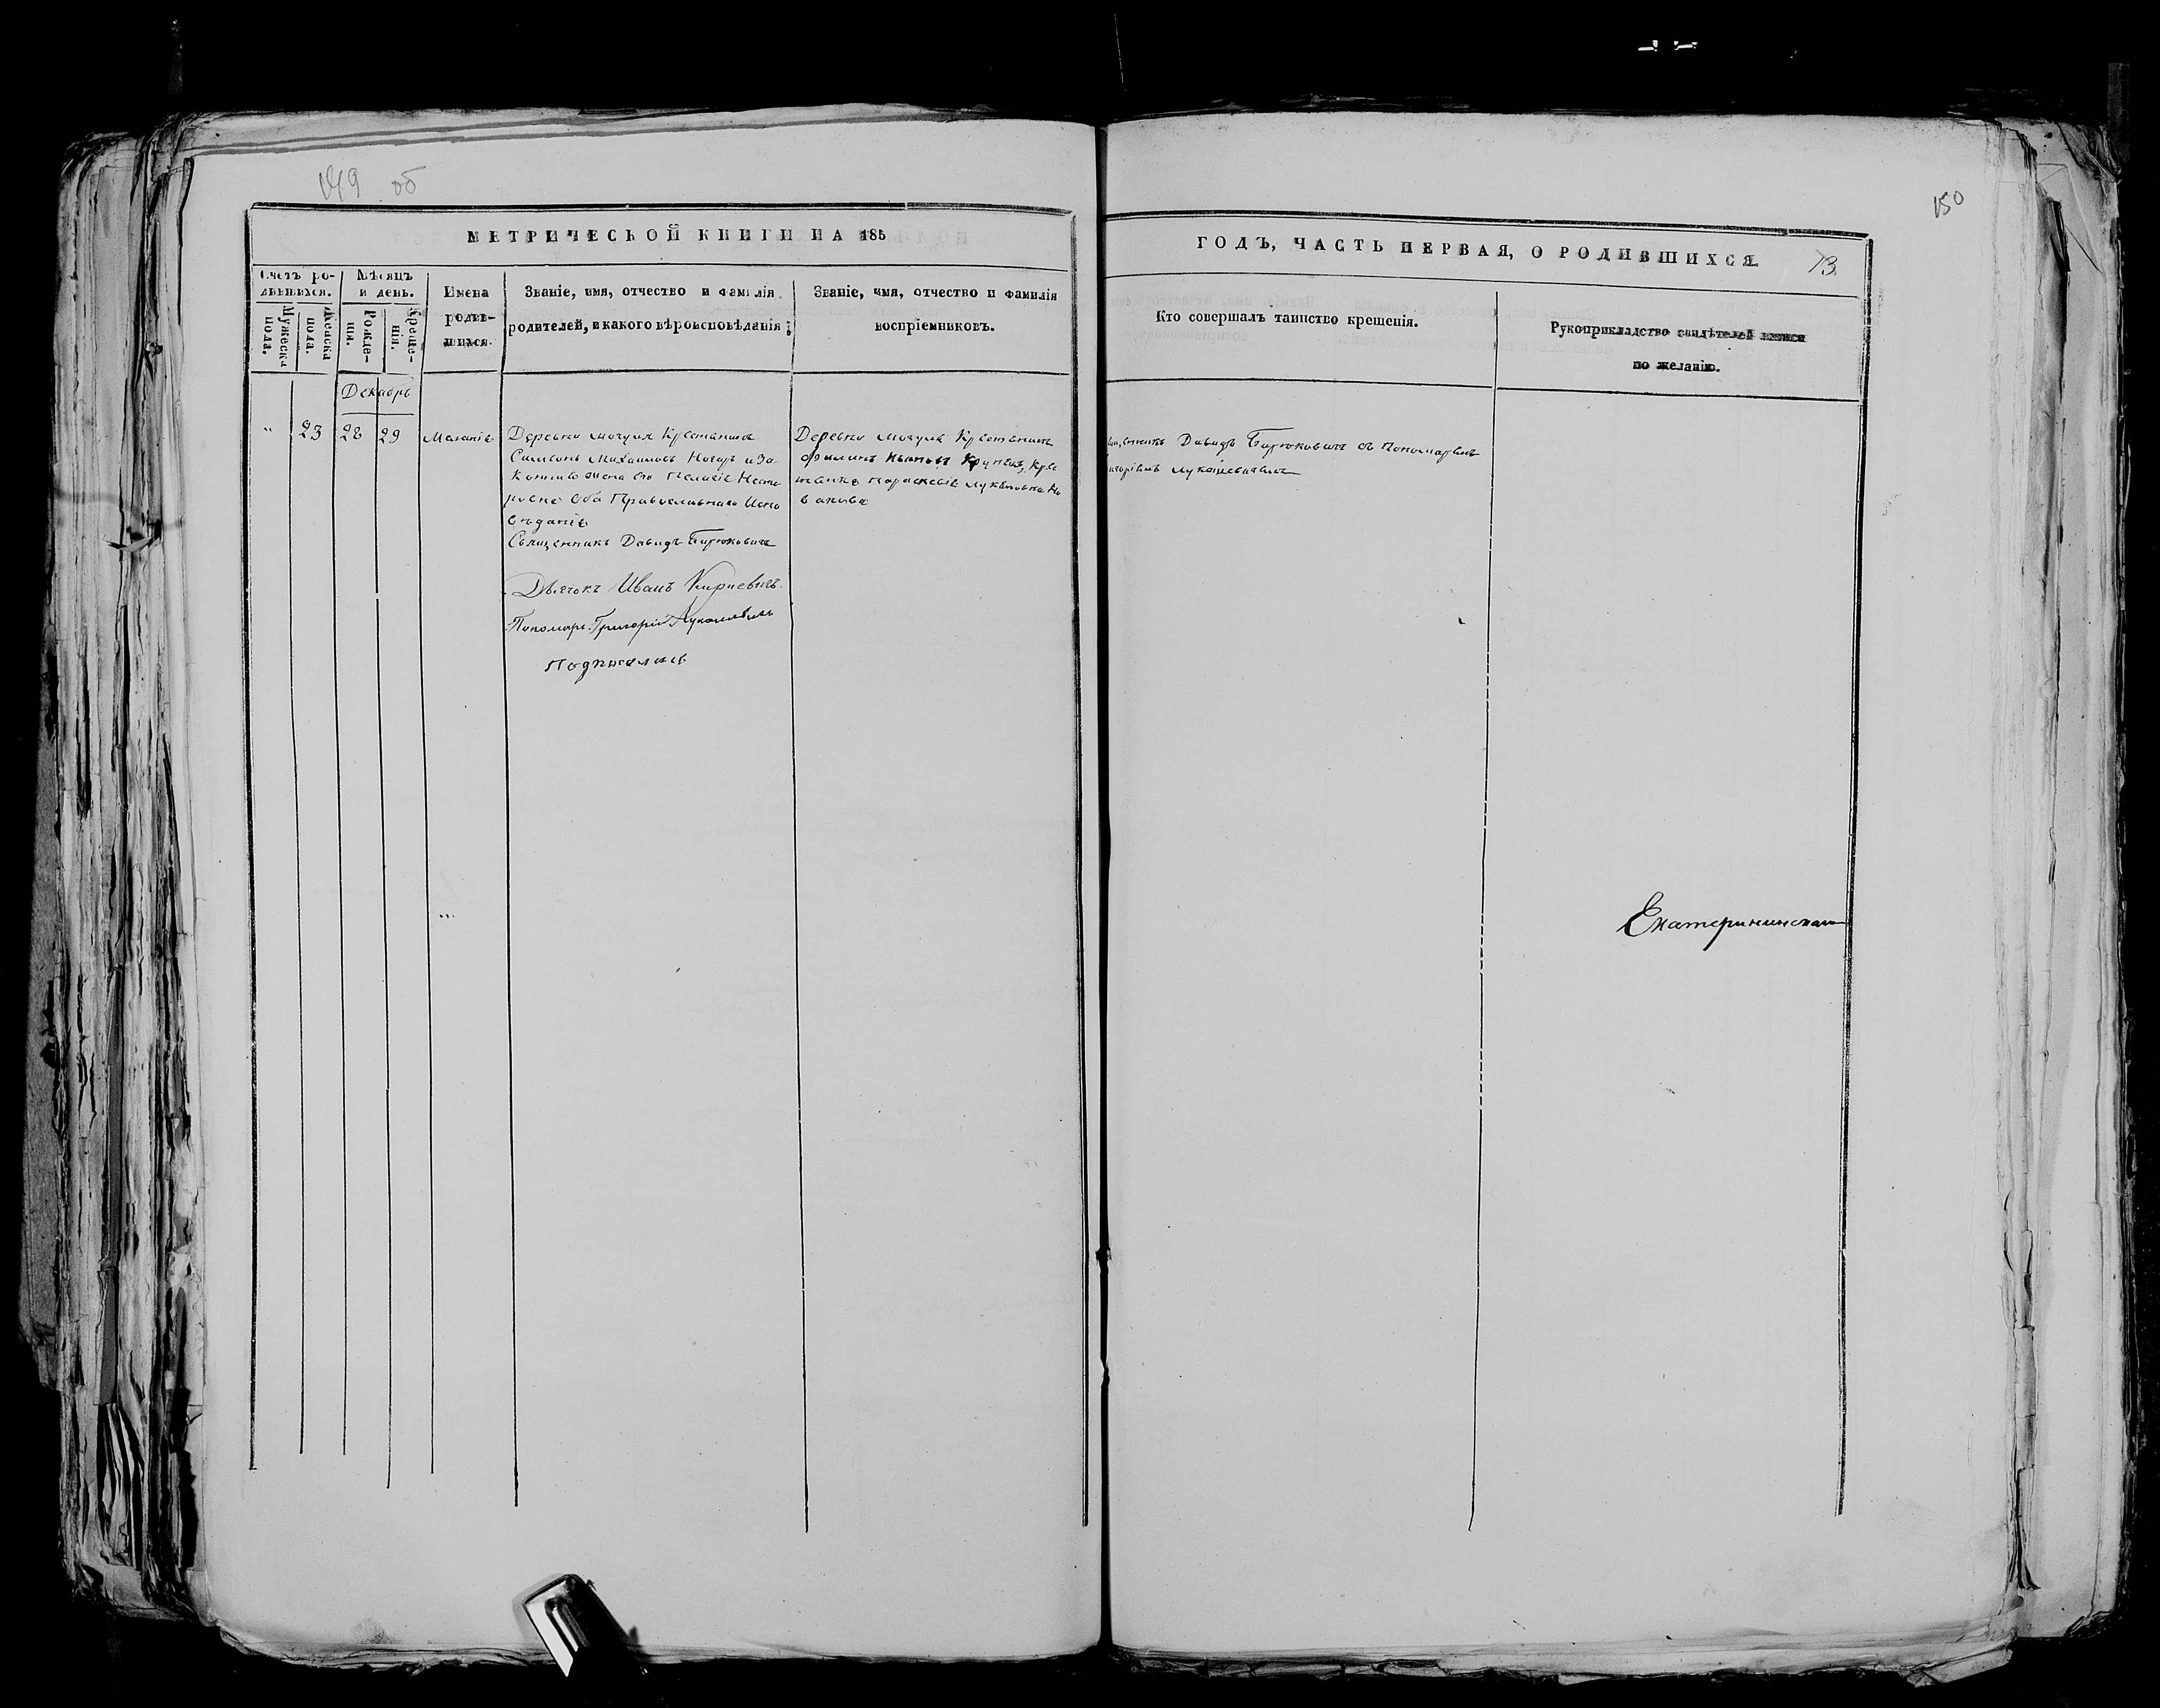 149 об
МЕТРИЧЕСКОЙ КНИГИ НА 185
Счетъ ро-
дившихся.
Мужеска
пола.
Женска
пола.
Мѣсяцъ
и день.
Рожде-
нія.
Креще-
нія.
Имена
родив-
шихся.
Званіе, имя, отчество и фамилія
родителей, и какого вѣроисповѣданія
Званіе, имя, отчество и фамилія
воспріемниковъ.
Декабрь
" 23 28 29 Меланія
Деревни Могула Крестянинъ
Симеонъ Михаиловъ и За
конная жена его Пелагія Несте
рова Оба Православнаго Испо
веданія
Священникъ Давидъ Бирюковичъ
Дьячокъ Иванъ Кирневичъ
Пономарь Григорій Лукашевичъ
Подписались
Деревни Могула Крестянинъ
Ивановъ Крупеня, Крес
тянка Параскевія
150
ГОДЪ, ЧАСТЬ ПЕРВАЯ, О РОДИВШИХСЯ.
73.
Кто совершалъ таинство крещенія.
Рукоприкладство свидѣтелей записи
по желанію.
Давидъ Бирюковичъ съ Пономаремъ
Лукашевичемъ
Екатерининская